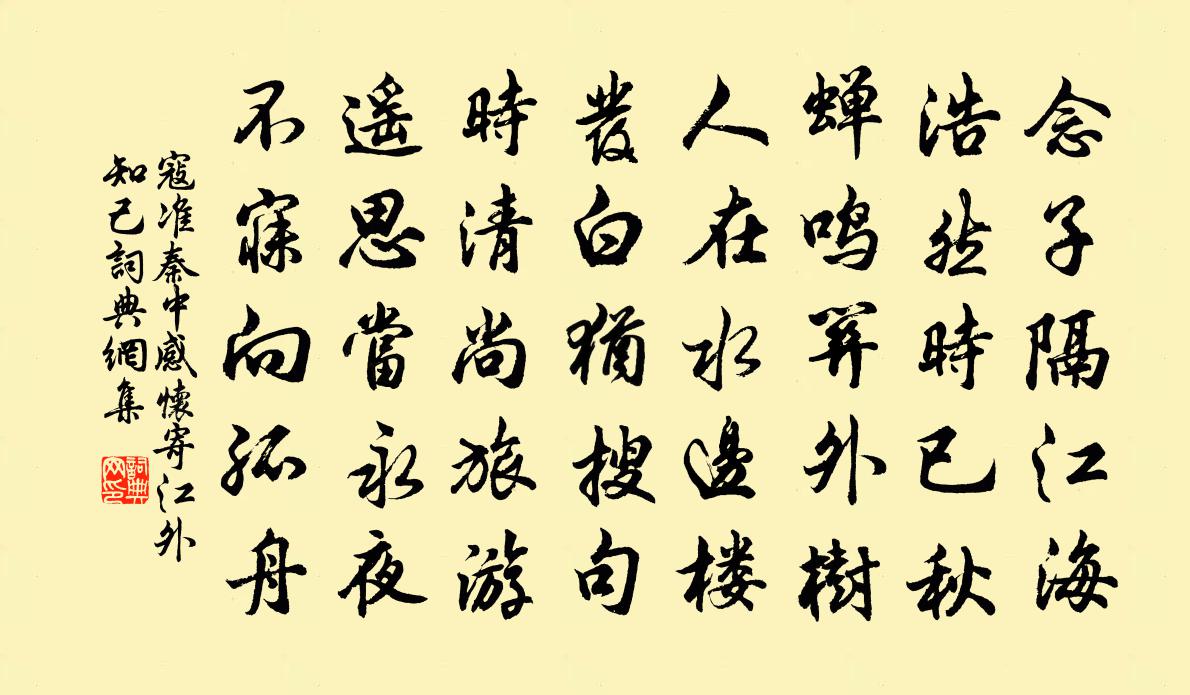 念子隔江海
浩然時已秋
蝉鸣關外樹
人在水邊楼
發白猶搜句
時清尚旅游
遥思當永夜
不寐向孤舟
寇准秦中感懷寄江外
知己詞典網集
詞典
网印